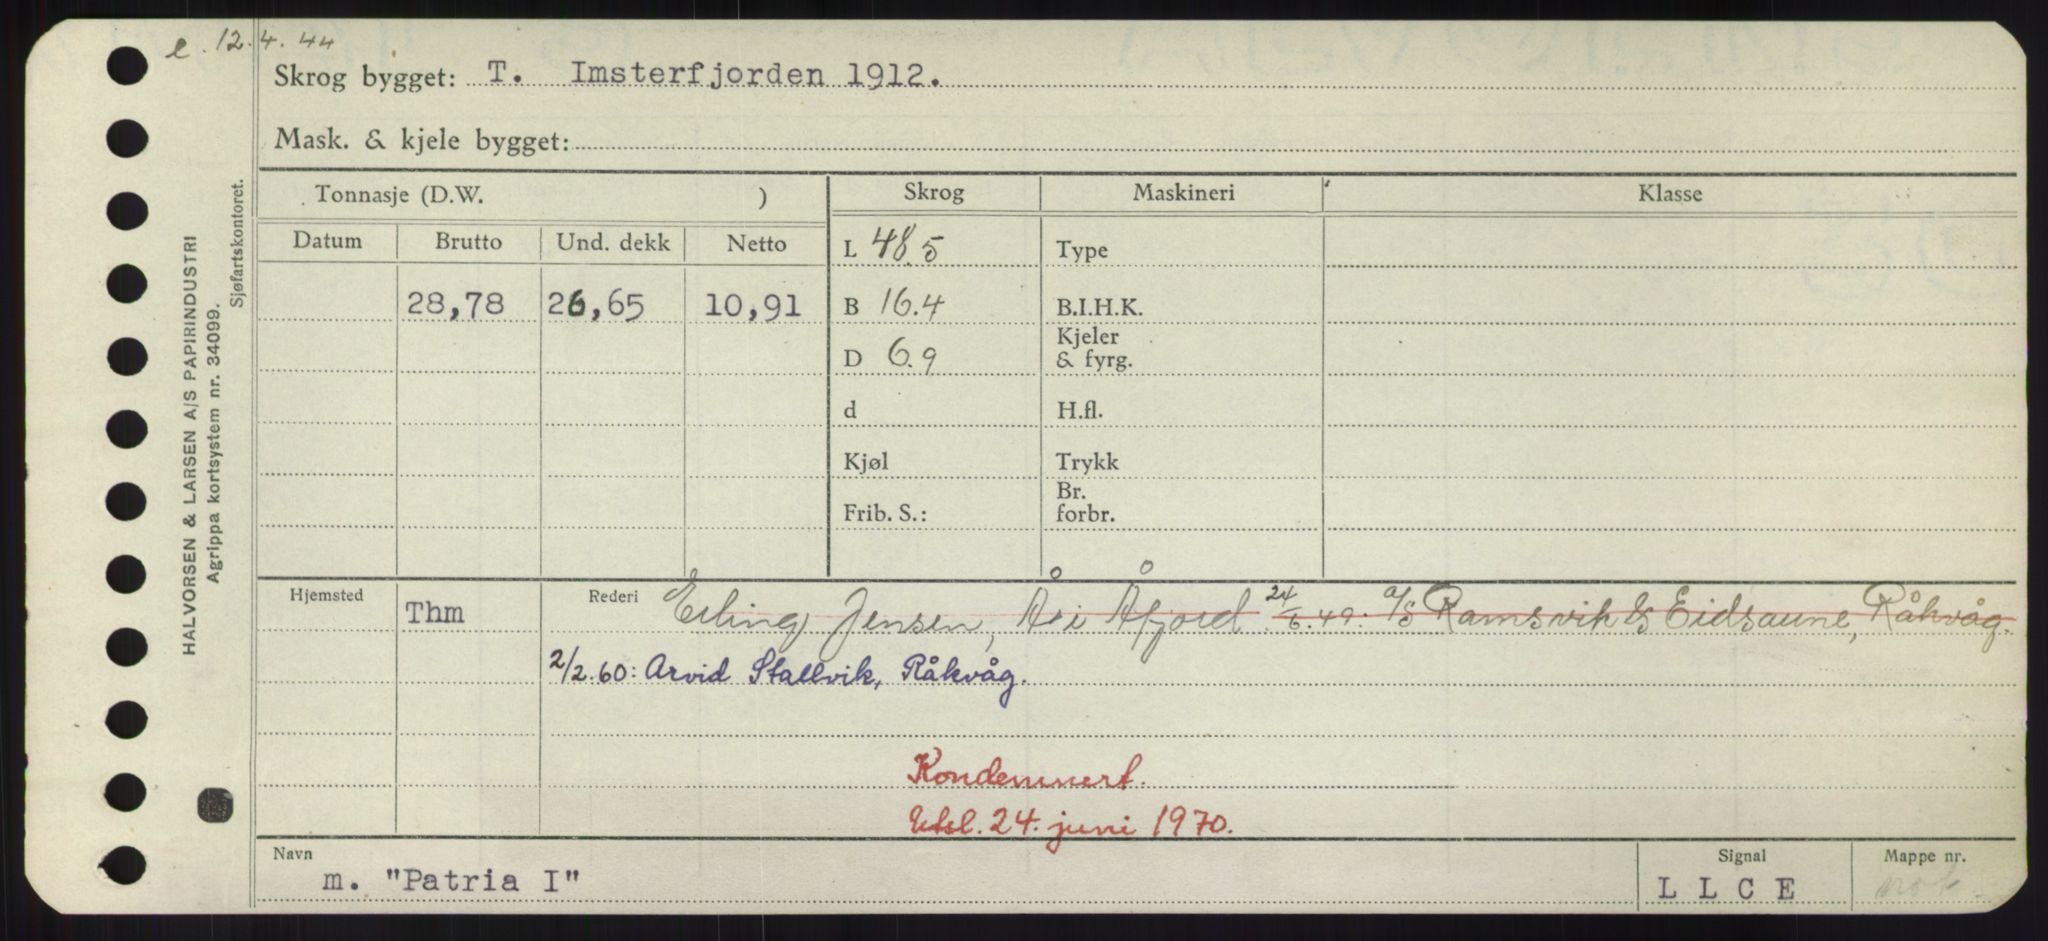 e. 12.4.44
Skrog bygget: T. Imsterfjorden 1912.
Mask. & kjele bygget:
Tonnasje (D.W. )
Skrog
Maskineri
Klasse
Datum
Brutto
Und. dekk
Netto
L 48.5
Type
28,78
26,65
10,91
B 16.4
B.I.H.K.
D 6.9
Kjeler
& fyrg.
d
H.fl.
Kjøl
Trykk
Frib. S.:
Br.
forbr.
Hjemsted
Thm
Rederi
Erling Jensen, Å i Åfjord. 24/6.49: A/S Ramsvik & Eidsaune, Råkvåg.
2/2.60: Arvid Stallvik, Råkvåg.
Kondemnert.
Utsl. 24. juni 1970.
Navn
m. "Patria I"
Signal
L L C E
Mappe nr.
not
HALVORSEN & LARSEN A/S PAPIRINDUSTRI
Agrippa kortsystem nr. 34099.
Sjøfartskontoret.